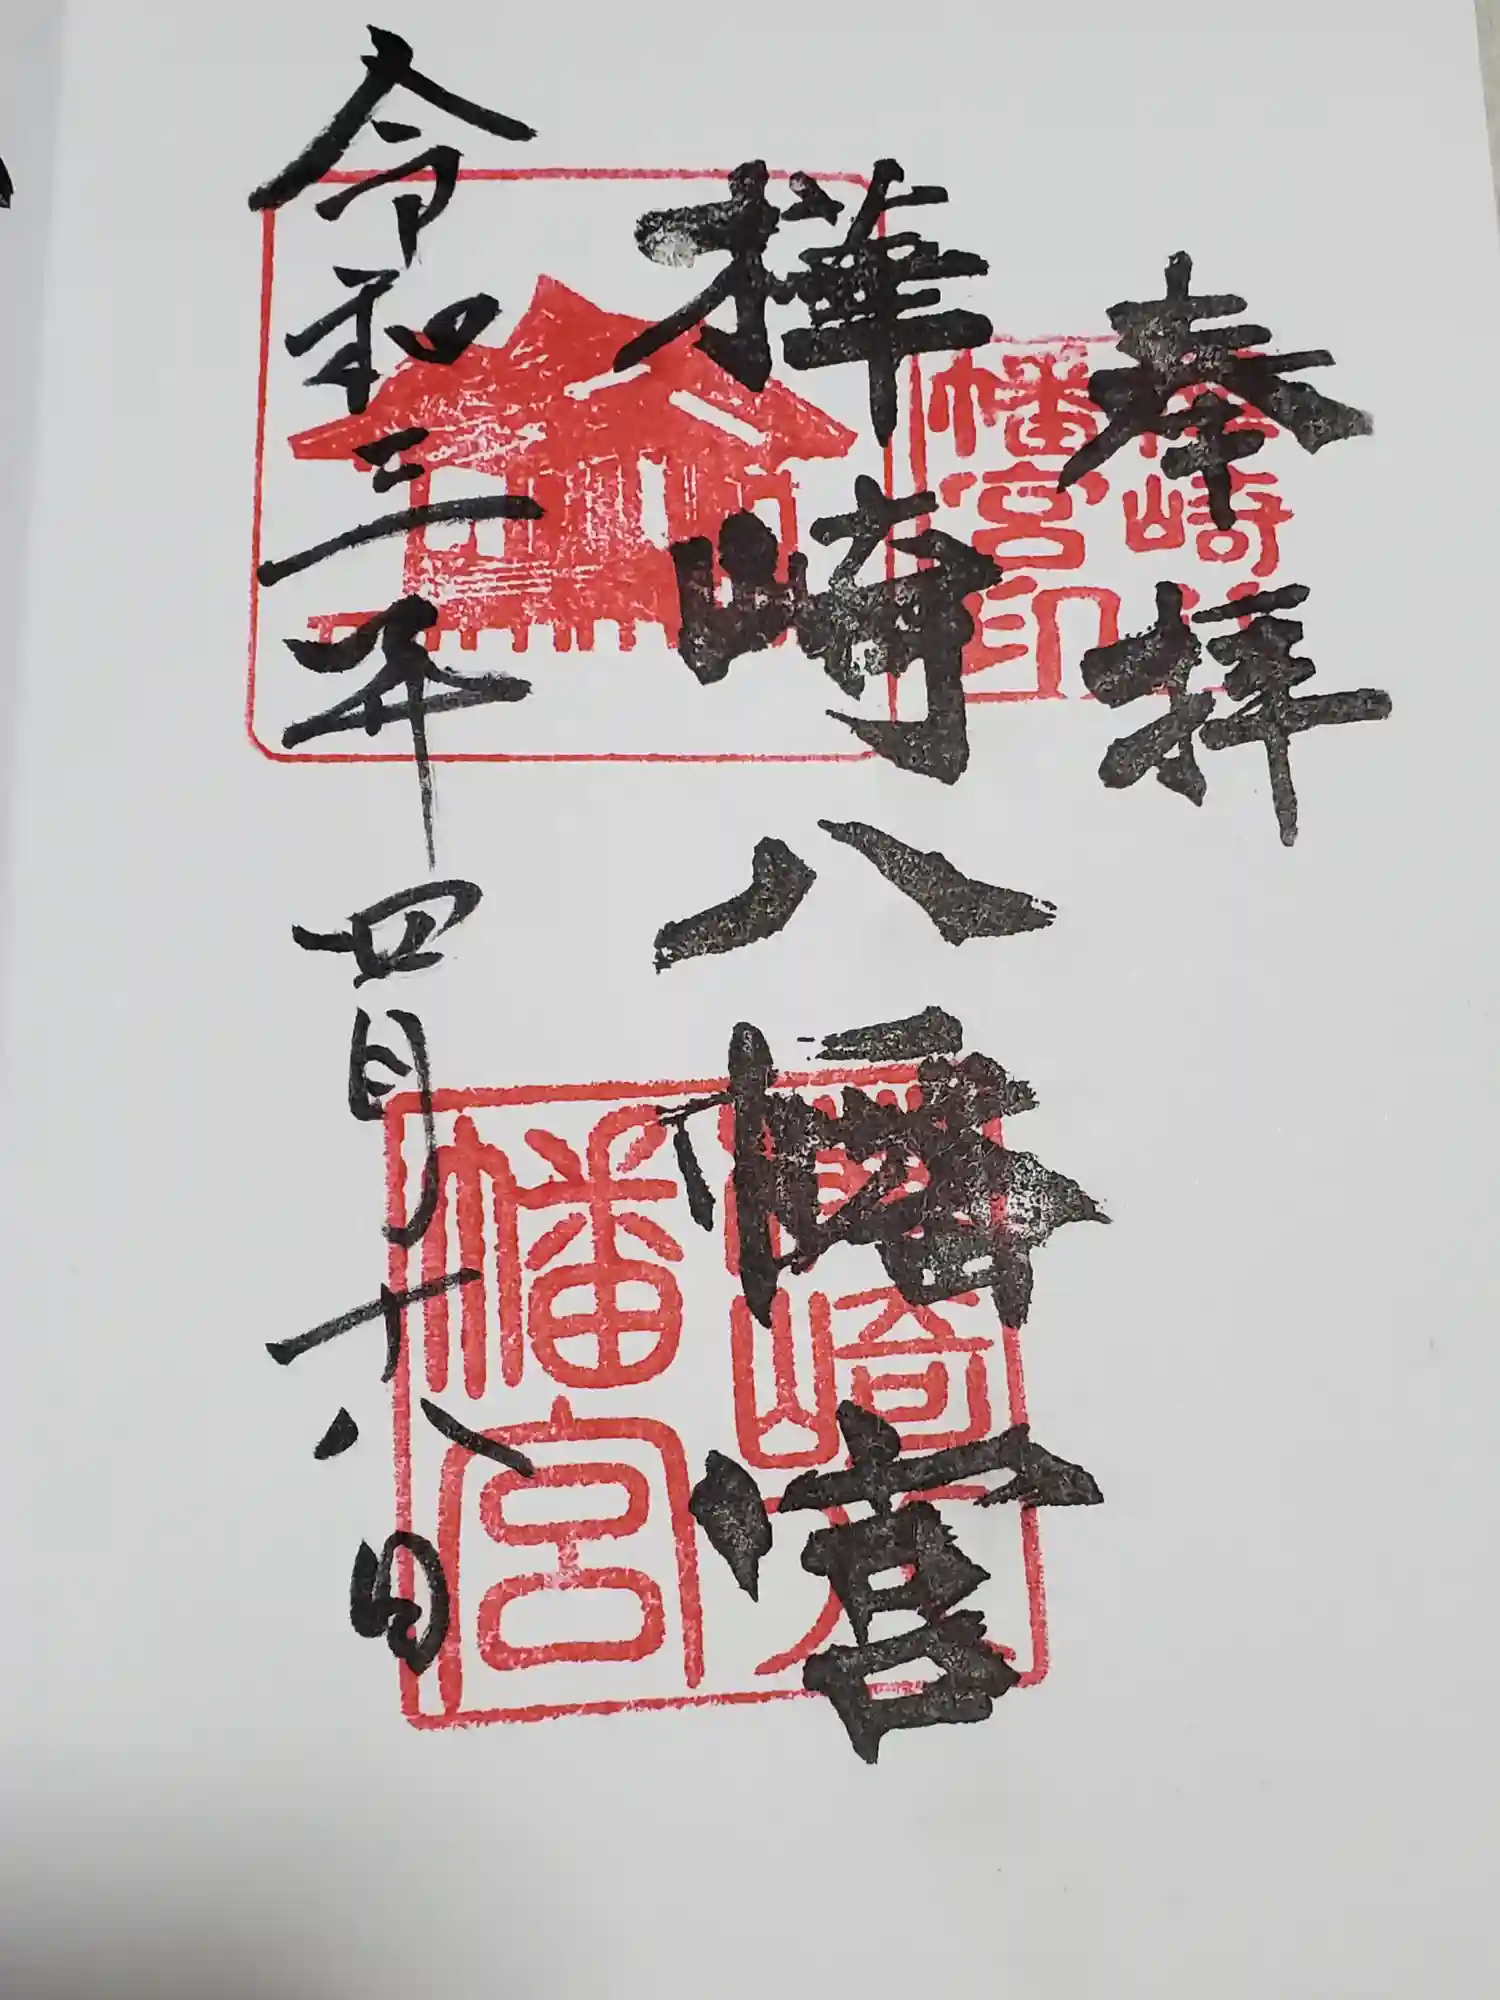 奉拝
樺崎八幡宮
令和三年四月十八日
崎
幡宮印
崎八
幡宮